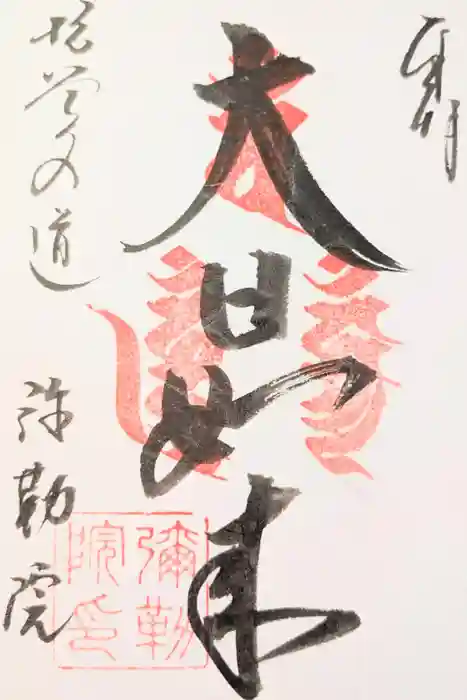 奉拝
大日如来
の道
弥勒院
彌勒
院印